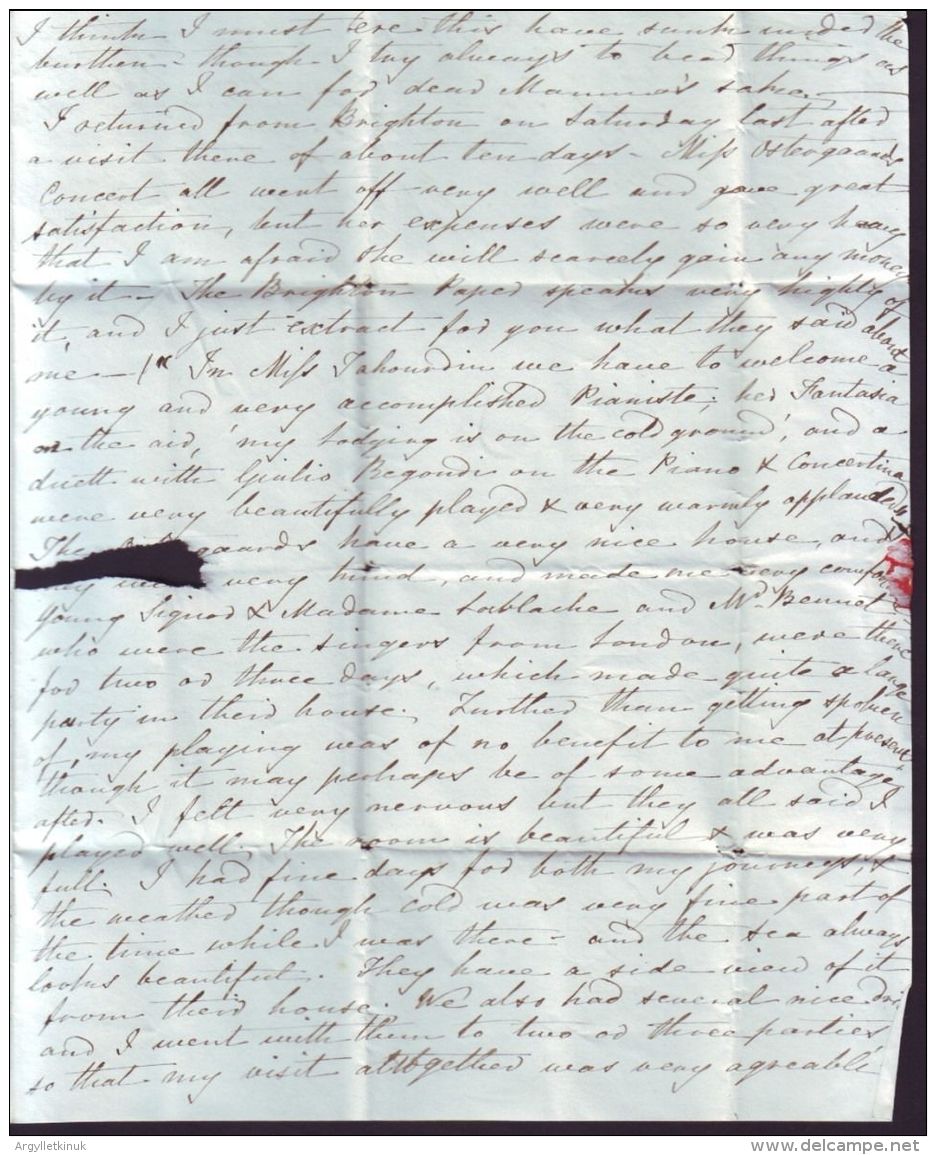 I think I must ere this have sunk under the
burthen - though I try always to bear things as
well as I can for dear Mamma's sake. -
I returned from Brighton on Saturday last after
a visit there of about ten days - Miss Ostergaards
Concert all went off very well and gave great
satisfaction, but her expenses were so very heavy
that I am afraid she will scarcely gain any money
by it - The Brighton Paper speaks very highly of
it, and I just extract for you what they said about
me - "In Miss Tahourdin we have to welcome a
young and very accomplished Pianiste; her Fantasia
on the air, 'my lodging is on the cold ground', and a
duett with Giulio Regondi on the Piano & Concertina
were very beautifully played & very warmly applauded"
The gaards have a very nice house, and
very kind, and made me very comfor
Young Signor & Madame Lablache and Mr. Bennet
who were the singers from London, were there
for two or three days, which made quite a large
party in their house. Further than getting spoken
of, my playing was of no benefit to me at present
though it may perhaps be of some advantage
after. I felt very nervous but they all said I
played well. The room is beautiful & was very
full. I had fine days for both my journeys, &
the weather though cold was very fine part of
the time while I was there - and the sea always
looks beautiful. They have a side view of it
from their house. We also had several nice dri
and I went with them to two or three parties
so that my visit alltogether was very agreable
Argylletkinuk
www.delcampe.net